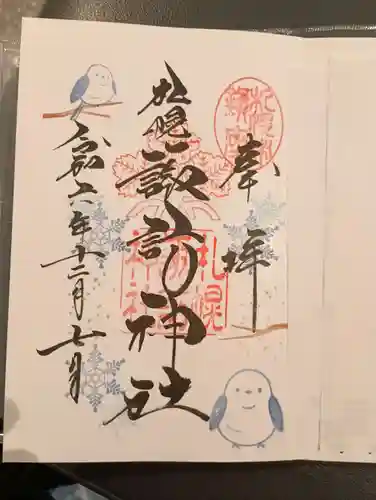 奉拝
札幌諏訪神社
令和六年十二月七日
札幌
神社